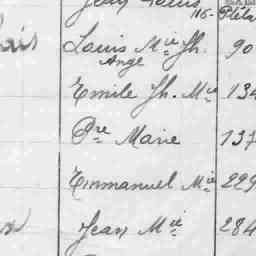 Jean Louis
116-
Louis Mie Jh. 90
Ange
Emile Jh. Mie 134
Pre Marie 137
Emmanuel Mie 229
Jean Mie 284